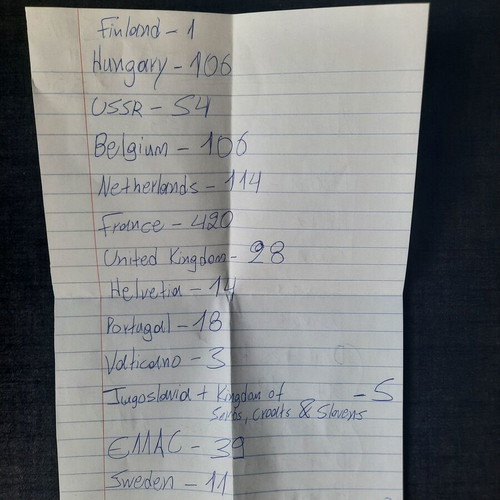 Finland - 1
Hungary - 106
USSR - 54
Belgium - 106
Netherlands - 114
France - 420
United Kingdom - 98
Helvetia - 14
Portugal - 18
Vaticano - 3
Jugoslavia + Kingdan of - 5
Serbs, croats & Slovens
EMAC - 39
Sweden - 11